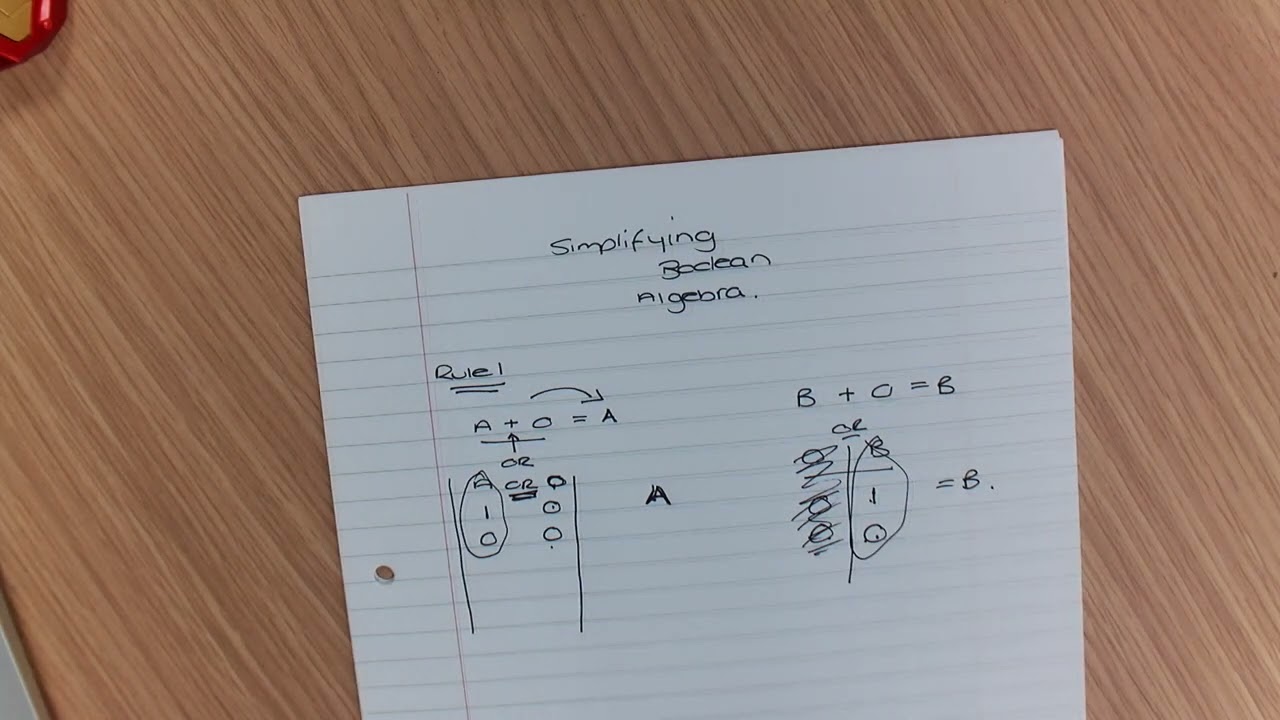 Simplifying
Boolean
Algebra.
Rule 1
A + 0 = A
OR
A OR 0
1 0
0 0
A
B + 0 = B
OR
0 B
1
0 0
= B.